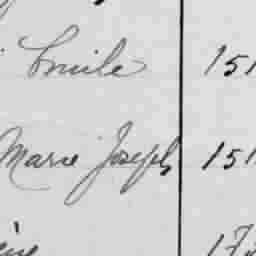 Emile 151
Marie Joseph 151
17